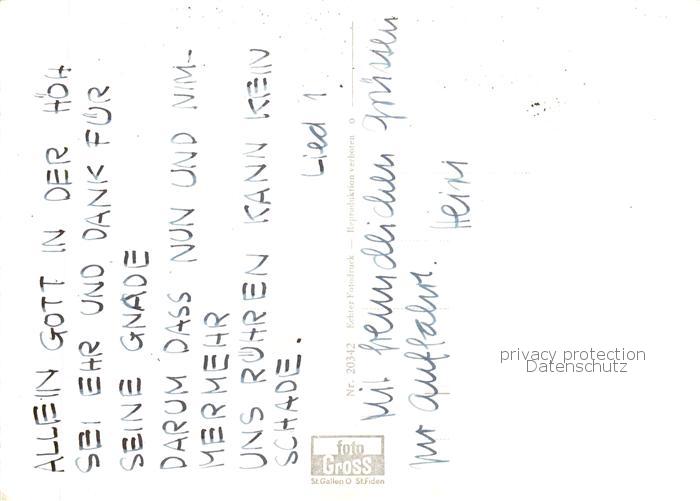 ALLEIN GOTT IN DER HÖH
SEI EHR UND DANK FÜR
SEINE GNADE
DARUM DASS NUN UND NIM-
MERMEHR
UNS RÜHREN KANN KEIN
SCHADE.
Lied 1
Nr. 20342 Echter Fotodruck — Reproduktion verboten
Mit freundlichen Grüssen
zur Auffahrt.
Heini
foto
GROSS
St.Gallen O St.Fiden
privacy protection
Datenschutz